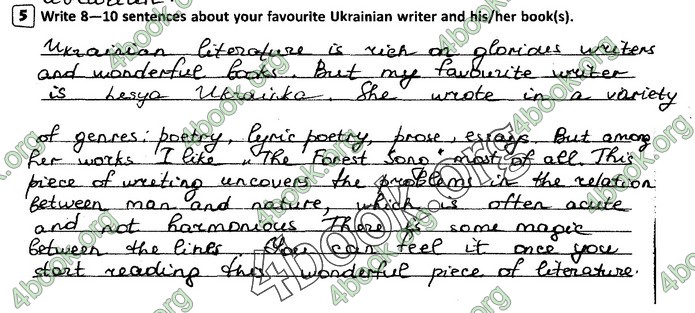 5 Write 8—10 sentences about your favourite Ukrainian writer and his/her book(s).
Ukrainian literature is rich on glorious writers
and wonderful books. But my favourite writer
is Lesya Ukrainka. She wrote in a variety
of genres: poetry, lyric poetry, prose, essays. But among
her works I like „The Forest Song" most of all. This
piece of writing uncovers the problems in the relation
between man and nature, which is often acute
and not harmonious. There is some magic
between the lines. You can feel it once you
start reading this wonderful piece of literature.
4book.org
4book.org
4book.org
4book.org
4book.org
4book.org